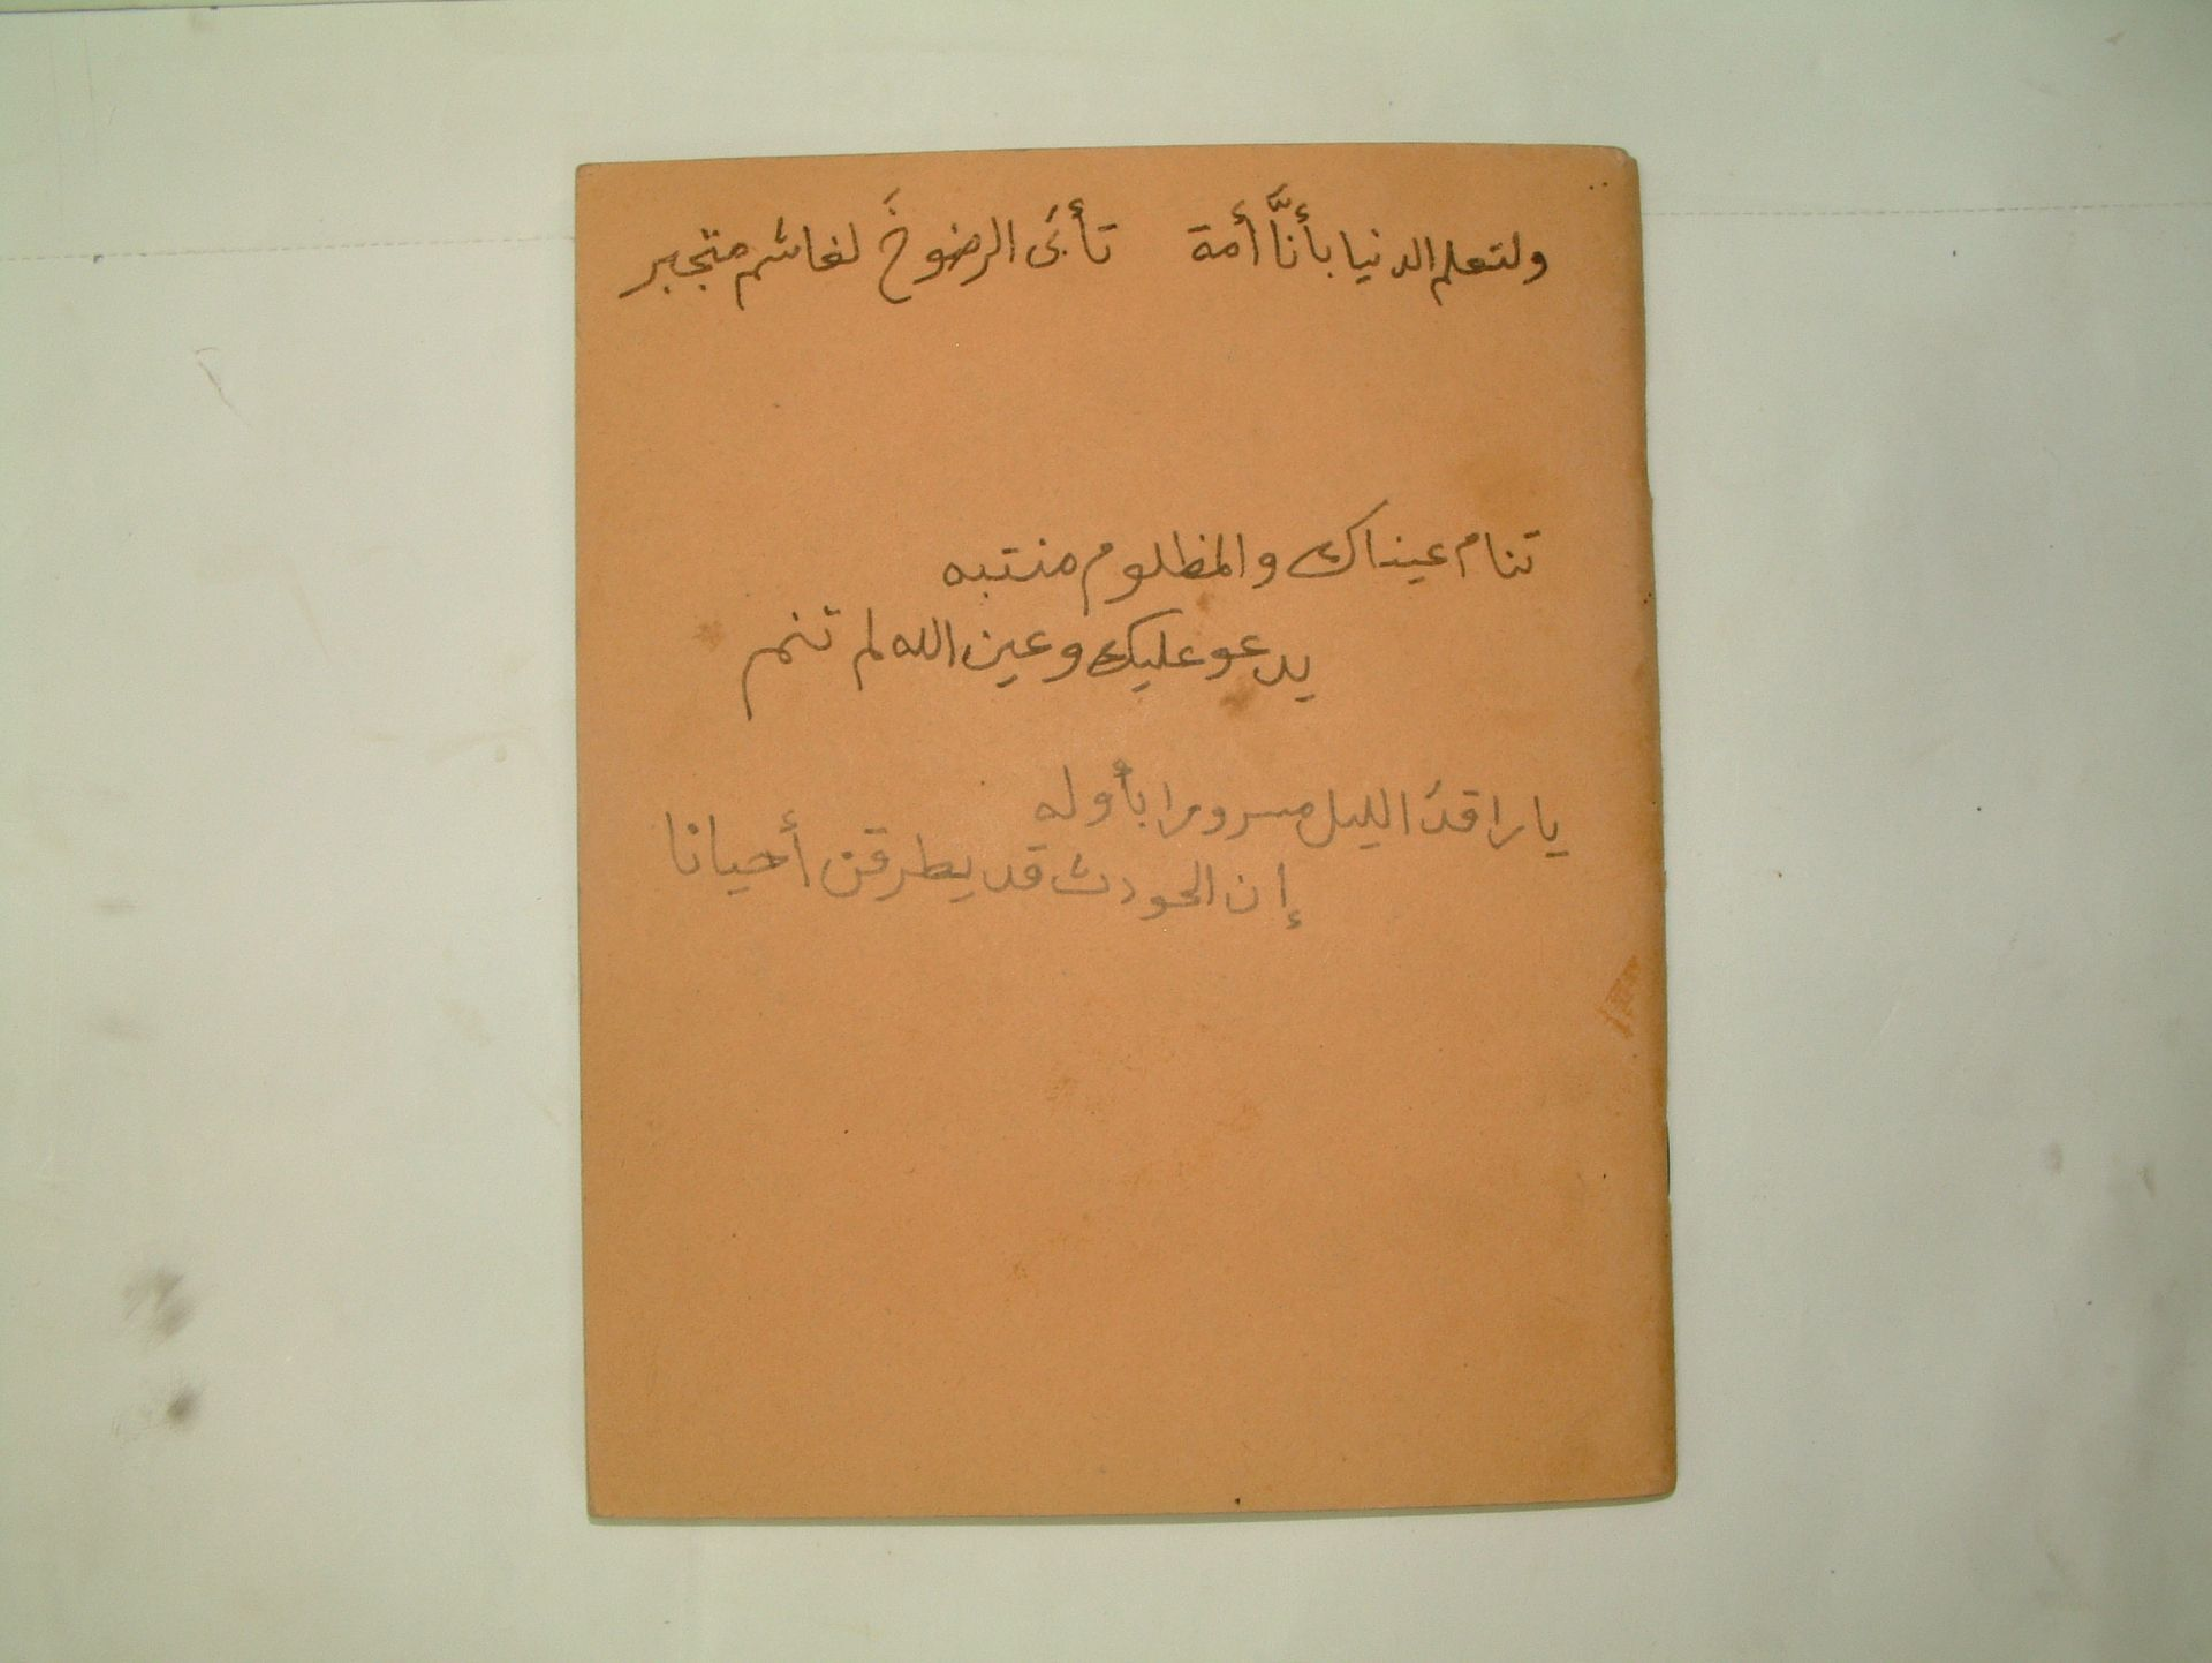 ولتعلم الدنيا بأنَّا أمة تأبَى الرضوخَ لغاشم متجبر
تنام عيناك والمظلوم منتبه
يدعو عليك وعين الله لم تنم
يا راقدَ الليل مسرورا بأوله
إن الحودث قد يطرقن أحيانا